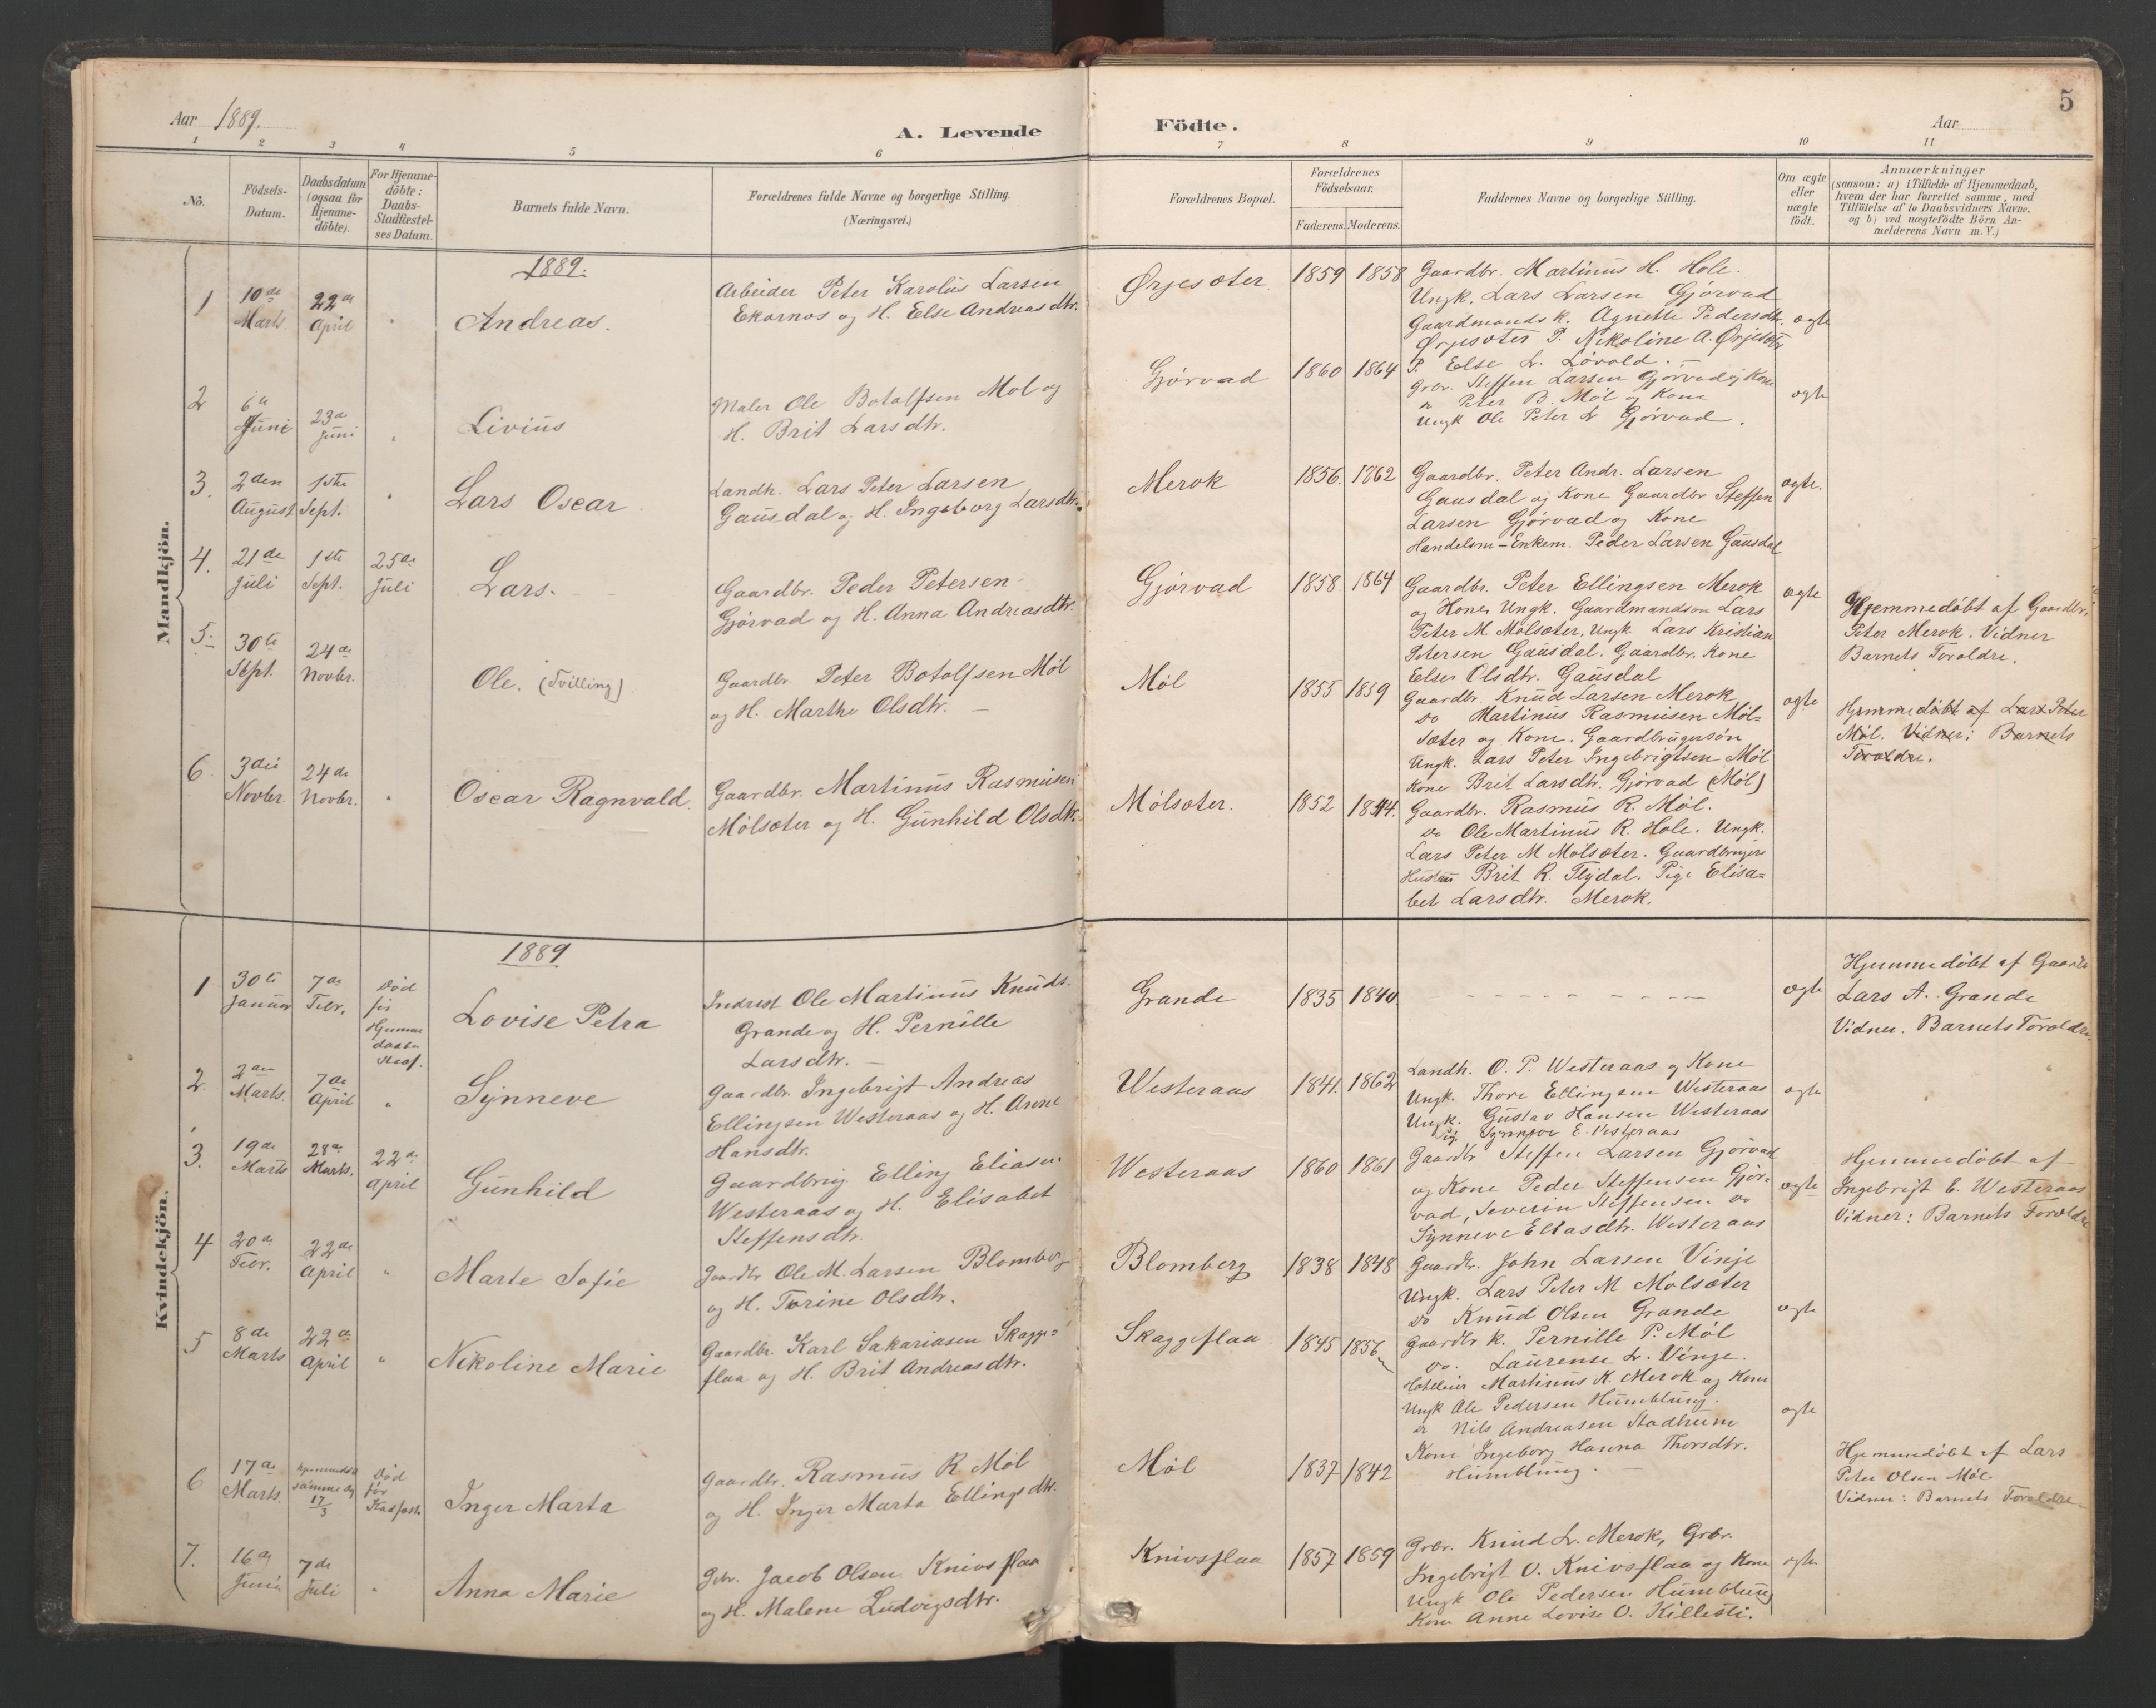 5
Aar 1889.
A. Levende Födte.
Aar
1 2 3 4 5 6 7 8 9 10 11
No.
Födsels-Datum.
Daabsdatum (ogsaa for Hjemme-döbte).
For Hjemme-döbte: Daabs-Stadfæstel-ses Datum.
Barnets fulde Navn.
Forældrenes fulde Navne og borgerlige Stilling.
(Næringsvei.)
Forældrenes Bopæl.
Forældrenes Födselsaar.
Faderens. Moderens.
Faddernes Navne og borgerlige Stilling.
Om ægte eller uægte födt.
Anmærkninger
(saasom: a) i Tilfælde af Hjemmedaab, hvem der har forrettet samme, med Tilföielse af to Daabsvidners Navne, og b) ved uægtefödte Börn An-melderens Navn m.V.)
Mandkjön.
1889.
1 10de Marts. 22de April " Andreas.
Arbeider Peter Karolus Larsen
Ekornæs og H. Else Andreasdtr.
Ørjesæter. 1859 1858
Gaardbr. Martinus H. Hole.
Ungk. Lars Larsen Gjörvad
Gaardmands k. Agnette Pedersdtr.
Ørjesæter P. Nikoline A. Ørjesæter
P. Else L. Lövold.
ægte
2 6te Juni 23de Juni " Livius
Maler Ole Botolfsen Möl og
H. Brit Larsdtr.
Gjörvad 1860 1864
Grbr. Steffen Larsen Gjörvad og Kone
Do Peter B. Möl og Kone
Ungk Ole Peter L Gjörvad.
ægte
3. 2den August 1ste Sept. " Lars Oscar
Landh. Lars Peter Larsen
Gausdal og H. Ingeborg Larsdtr.
Merok 1856. 1862
Gaardbr. Peter Andr. Larsen
Gausdal og Kone Gaardbr Steffen
Larsen Gjörvad og Kone
Handelsm-Enkem. Peder Larsen Gausdal
ægte.
4. 21de Juli 1ste Sept. 25de Juli Lars.
Gaardbr. Peder Petersen
Gjörvad og H. Anna Andreasdtr.
Gjörvad 1858. 1864
Gaardbr. Peter Ellingsen Merok
og Kone, Ungk. Gaardmandsön Lars
Peter M. Mölsæter, Ungk Lars Kristian
Petersen Gausdal. Gaardbr. Kone
Else Olsdtr. Gausdal
ægte
Hjemmedöbt af Gaardbr.
Peter Merok. Vidner
Barnets Forældre.
5. 30te Sept. 24de Novbr. Ole. (Tvilling).
Gaardbr. Peter Botolfsen Möl
og H. Marthe Olsdtr.
Möl 1855 1859
Gaardbr. Knud Larsen Merok
Do Martinus Rasmusen Möl-
sæter og Kone. Gaardbrugersön
Ungk. Lars Peter Ingebrigtsen Möl
Kone Brit Larsdtr. Gjörvad (Möl)
ægte
Hjemmedöbt af Lars Peter
Möl. Vidner: Barnets
Forældre.
6. 3die Novbr. 24de Novbr. " Oscar Ragnvald.
Gaardbr. Martinus Rasmusen
Mölsæter og H. Gunhild Olsdtr.
Mölsæter. 1852 1844.
Gaardbr. Rasmus R. Möl.
Do Ole Martinus R. Hole. Ungk.
Lars Peter M Mölsæter. Gaardbrugers
Hustru Brit R. Flydal. Pige Elisa-
bet Larsdtr. Merok.
Kvindekjön.
1889
1 30te Januar 7de Febr. Död för Hjemme daabs Stadf. Lovise Petra
Inderst Ole Martinus Knuds.
Grande og H. Pernille
Larsdtr.
Grande 1835 1840
ægte
Hjemmedöbt af Gaardbr
Lars A. Grande
Vidner. Barnets Forældre
2. 2den Marts. 7de April " Synneve
Gaardbr. Ingebrigt Andreas
Ellingsen Westeraas og H. Anne
Hansdtr.
Westeraas 1841. 1862
Landh. O. P. Westeraas og Kone
Ungk. Thore Ellingsen Westeraas
Ungk. Gustav Hansen Westeraas
Pig. Synneve E. Westeraas
ægte
3. 19de Marts 28de Marts. 22de April Gunhild
Gaardbrug. Elling Eliasen
Westeraas og H. Elisabet
Steffensdtr.
Westeraas 1860 1861
Gaardbr Steffen Larsen Gjörvad
og Kone Peder Steffensen Gjör-
vad, Severin Steffensen Do
Synneve Eliasdtr. Westeraas
ægte
Hjemmedöbt af
Ingebrigt E. Westeraas
Vidner: Barnets Forældre
4 20de Febr. 22de April " Marte Sofie
Gaardbr Ole M. Larsen Blomberg
og H. Torine Olsdtr.
Blomberg 1838 1848
Gaardbr. John Larsen Vinje
Ungk. Lars Peter M Mölsæter
Do Knud Olsen Grande
Gaardbr k. Pernille P. Möl
Do. Laurense L. Vinje.
ægte
5 8de Marts 22de April " Nikoline Marie
Gaardbr. Karl Sakariasen Skagge-
flaa og H. Brit Andreasdtr.
Skaggeflaa 1845 1856
Hoteleier Martinus K. Merok og Kone
Ungk Ole Pedersen Humblung.
Do Nils Andreasen Stadheim
Kone Ingeborg Hanna Thorsdtr.
Humblung.
ægte
6 17de Marts. hjemmedöbt samme dag 17/3 Död för Inger Marta
Gaardbr. Rasmus R. Möl
og H. Inger Marta Ellingsdtr.
Möl 1837 1842
Hjemmedöbt af Lars
Peter Olsen Möl
Vidner: Barnets Forældre
7. 16de Juni 7de Juli " Anna Marie
Gbr. Jacob Olsen Knivsflaa
og H. Malene Ludvigsdtr.
Knivsflaa 1857 1859
Grbr. Knud L. Merok, Grbr.
Ingebrigt O. Knivsflaa og Kone
Ungk Ole Pedersen Humblung
Kone Anne Lovise O. Killesti.
ægte